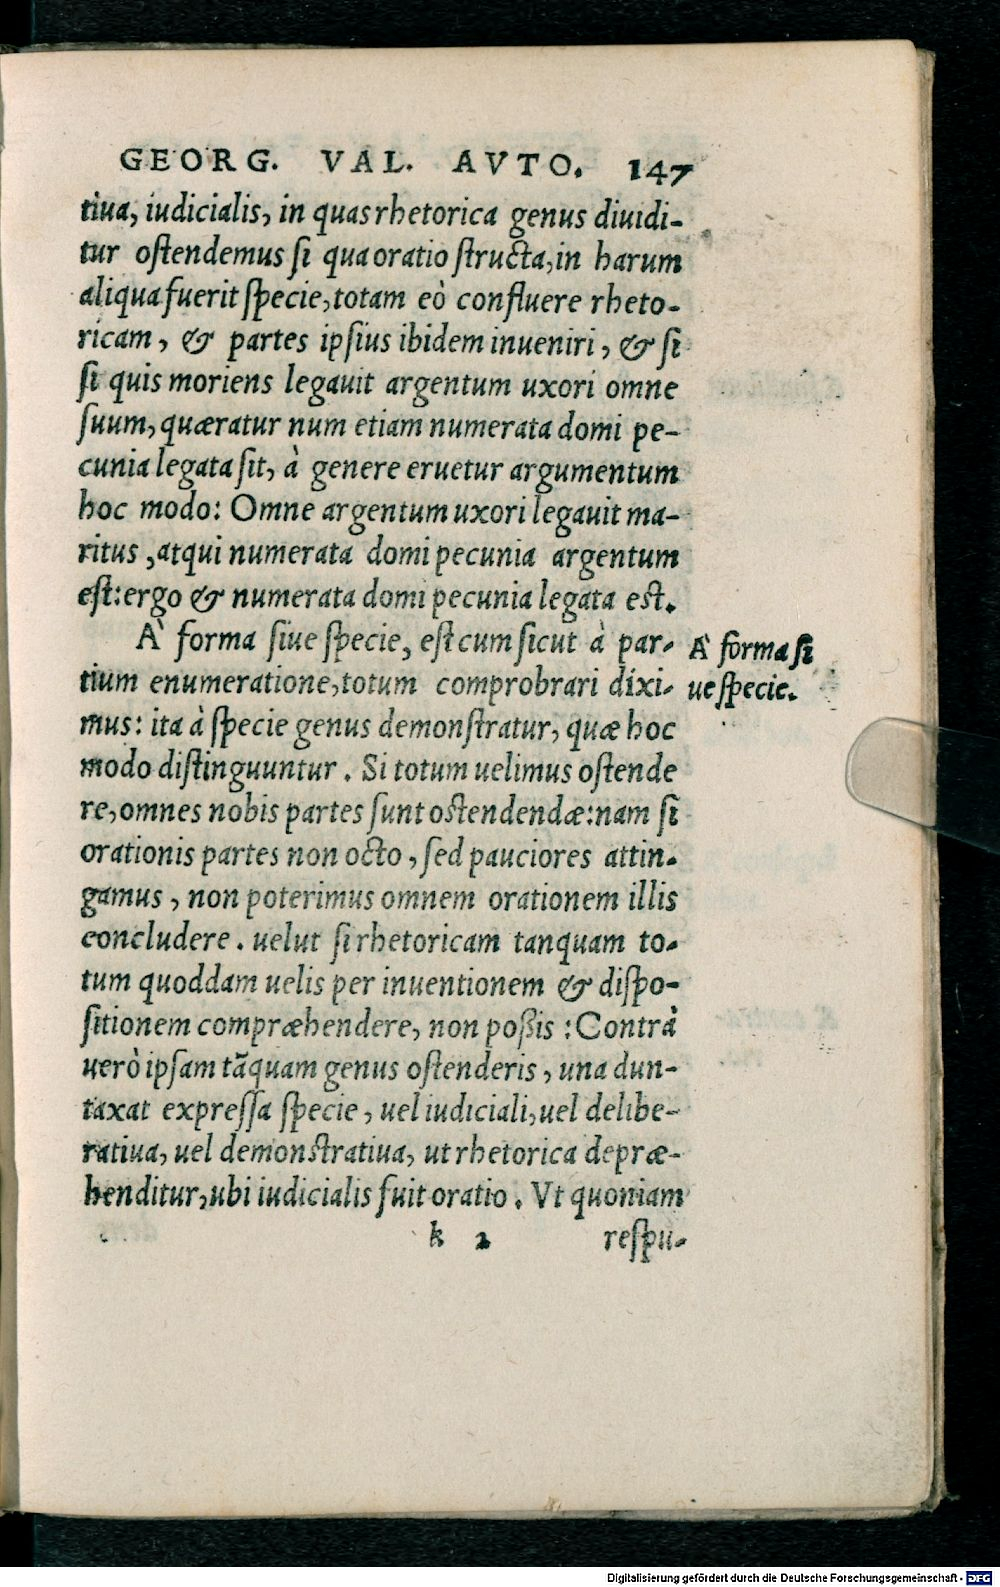 GEORG. VAL. AVTO. 147
tiua, iudicialis, in quas rhetorica genus diuidi-
tur ostendemus si qua oratio structa, in harum
aliqua fuerit specie, totam eò confluere rheto-
ricam, & partes ipsius ibidem inueniri, & si
si quis moriens legauit argentum uxori omne
suum, quæratur num etiam numerata domi pe-
cunia legata sit, à genere eruetur argumentum
hoc modo: Omne argentum uxori legauit ma-
ritus, atqui numerata domi pecunia argentum
est: ergo & numerata domi pecunia legata est.
À forma siue specie, est cum sicut à par-
tium enumeratione, totum comprobrari dixi-
mus: ita à specie genus demonstratur, quæ hoc
modo distinguuntur. Si totum uelimus ostende
re, omnes nobis partes sunt ostendendæ: nam si
orationis partes non octo, sed pauciores attin-
gamus, non poterimus omnem orationem illis
concludere. uelut si rhetoricam tanquam to-
tum quoddam uelis per inuentionem & dispo-
sitionem compræhendere, non poßis: Contrà
uerò ipsam tãquam genus ostenderis, una dun-
taxat expressa specie, uel iudiciali, uel delibe-
ratiua, uel demonstratiua, ut rhetorica depræ-
henditur, ubi iudicialis fuit oratio. Vt quoniam
k 2 respu-
À forma si
ue specie.
Digitalisierung gefördert durch die Deutsche Forschungsgemeinschaft - DFG